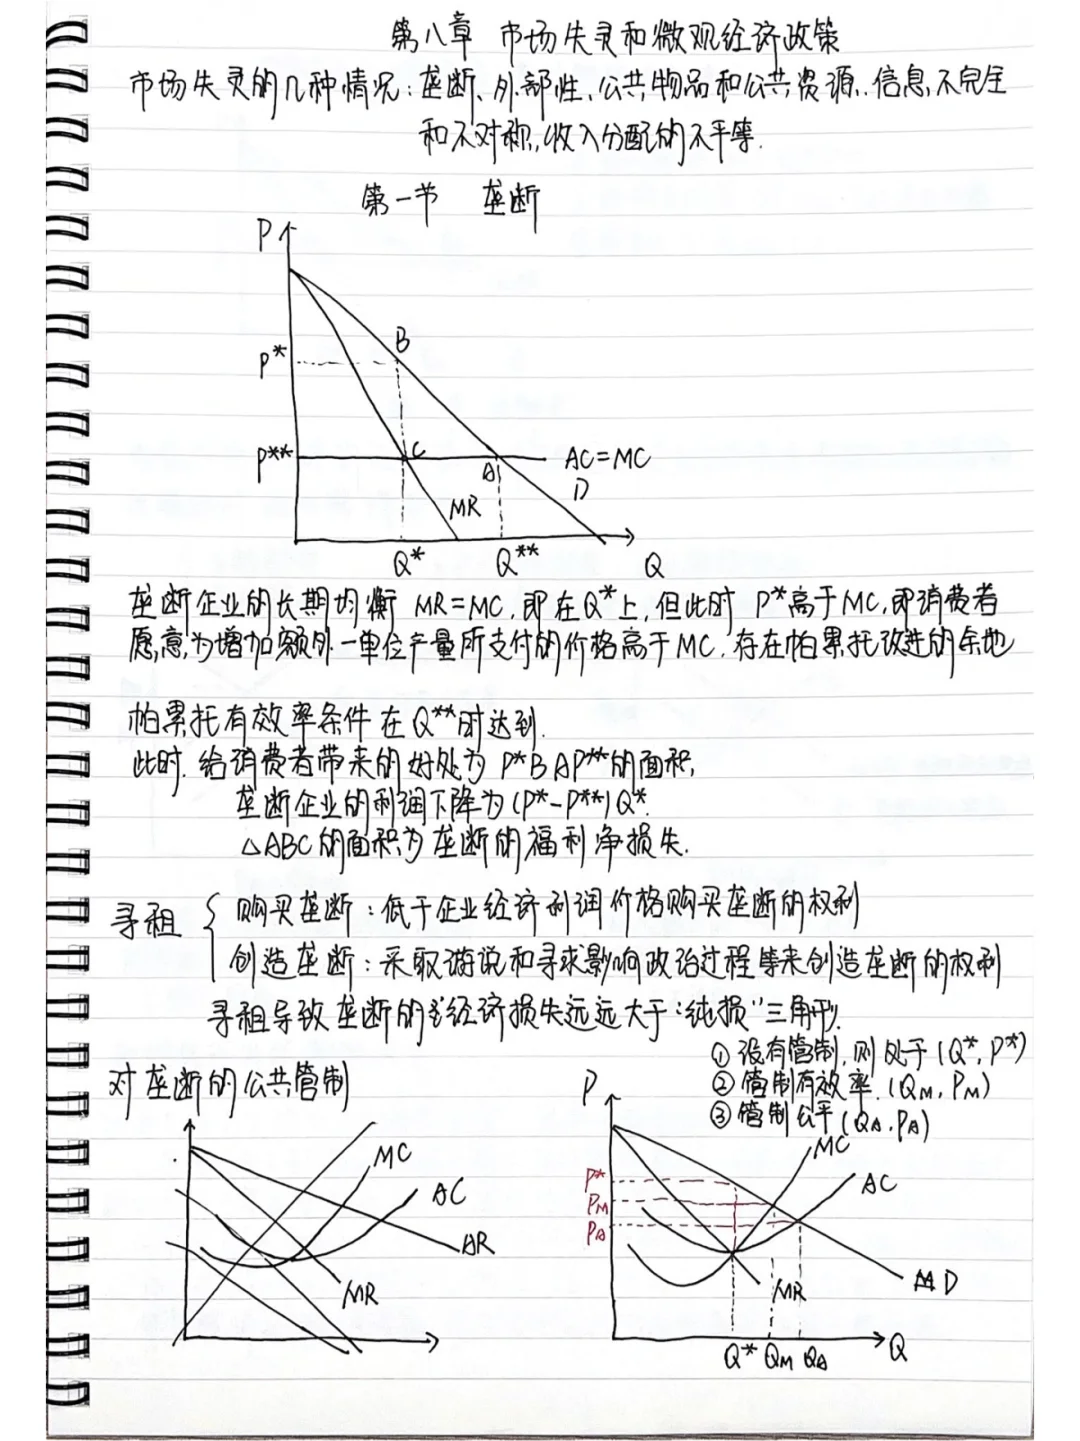 第八章 市场失灵和微观经济政策
市场失灵的几种情况:垄断、外部性、公共物品和公共资源、信息不完全
和不对称,收入分配的不平等.
第一节 垄断
P
B
P*
P**
C
A
AC=MC
D
MR
Q*
Q**
Q
垄断企业的长期均衡 MR=MC,即在Q*上,但此时 P*高于MC,即消费者
愿意为增加额外一单位产量所支付的价格高于MC.存在帕累托改进的余地
帕累托有效率条件在Q**时达到.
此时.给消费者带来的好处为 P*BAP**的面积,
垄断企业的利润下降为(P*-P**)Q*.
△ABC的面积为垄断的福利净损失.
寻租
购买垄断:低于企业经济利润价格购买垄断的权利
创造垄断:采取游说和寻求影响政治过程等来创造垄断的权利
寻租导致垄断的经济损失远远大于“纯损”三角形.
①没有管制,则处于(Q*,P*)
对垄断的公共管制
②管制有效率.(QM,PM)
③管制公平(QA.PA)
MC
AC
AR
MR
P
MC
AC
P*
PM
PA
D
MR
Q*
QM
QA
Q